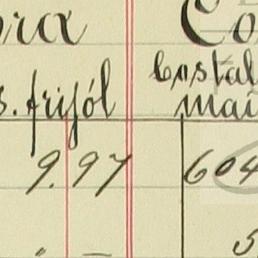 ora Co
s. frijól Costal
mai
9.97 604
5